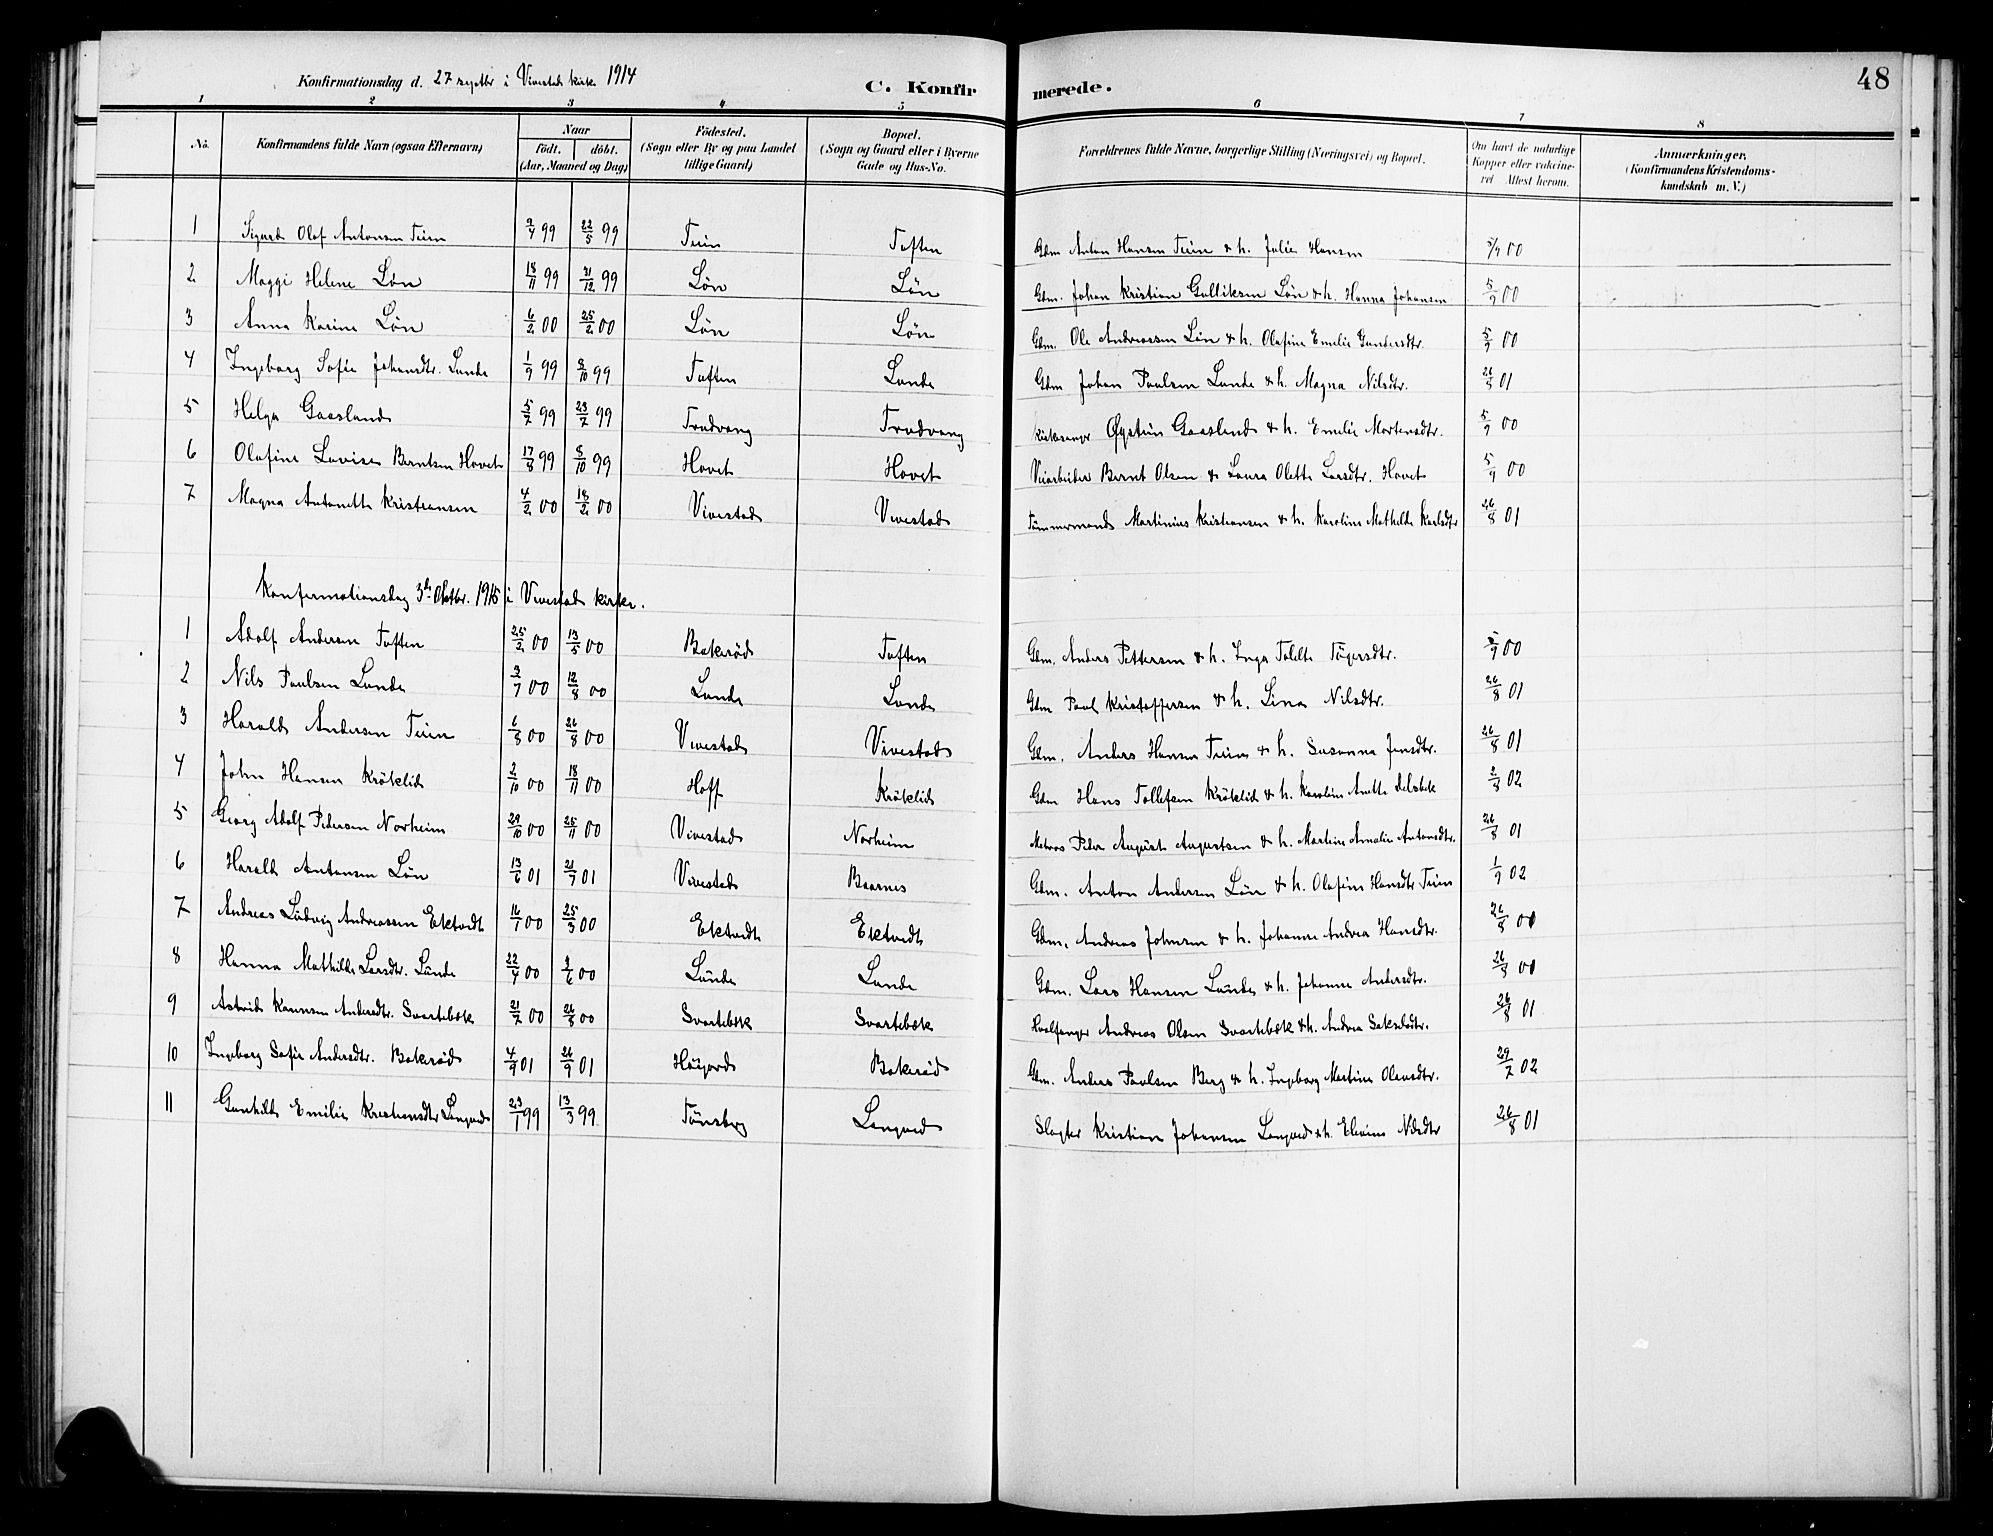 Konfirmationsdag d. 27 septbr i Vivestad kirke 1914
C. Konfirmerede.
48
1 2 3 4 5 6 7 8
No. Konfirmandens fulde Navn (ogsaa Efternavn) Naar født. døbt. (Aar, Maaned og Dag) Fødested. (Sogn eller By og paa Landet tillige Gaard) Bopæl. (Sogn og Gaard eller i Byerne Gade og Hus-No. Forældrenes fulde Navne, borgerlige Stilling (Næringsvei) og Bopæl. Om havt de naturlige Kopper eller vakcineret Attest herom. Anmærkninger. (Konfirmandens Kristendomskundskab m. V.)
1 Sigurd Olaf Antonsen Teien 99 22/5 99 Teien Toften Gdm Anton Hansen Teien & h. Julie Hansen 00
2 Maggi Helene Løn 18/11 99 31/12 99 Løn Løn Gdm. Johan Kristian Gulliksen Løn & h. Hanna Johansen 5/9 00
3 Anna Karine Løn 6/2 00 25/2 00 Løn Løn Gdm. Ole Andreassen Løn & h. Olefine Emelie Gundersdtr. 5/9 00
4 Ingeborg Sofie Johansdtr. Lunde 1/9 99 8/10 99 Toften Lunde Gdm Johan Paulsen Lunde & h. Magna Nilsdtr. 26/8 01
5 Helga Gaasland 5/7 99 23/7 99 Trudvang Trudvang kirkesanger Øystein Gaasland & h. Emelie Mortensdtr. 5/9 00
6 Olefine Lovise Berntsen Hovet 17/8 99 8/10 99 Hovet Hovet Veiarbeider Bernt Olsen & Laura Olette Larsdtr. Hovet 5/9 00
7 Magna Antonette Kristiansen 4/2 00 18/2 00 Vivestad Vivestad Tømmermand Martinius Kristiansen & h. Karoline Mathilde Karlsdtr 26/8 01
Konfirmationsdag 3d Oktbr. 1915 i Vivestad kirke.
1 Adolf Andersen Toften 25/2 00 13/5 00 Bakerød Toften Gdm. Anders Pettersen & h. Inga 00
2 Nils Paulsen Lunde 3/7 00 12/8 00 Lunde Lunde Gdm Paul Kristoffersen & h. Lina Nilsdtr. 26/8 01
3 Harald Andersen Teien 6/8 00 26/8 00 Vivestad Vivestad Gdm. Anders Hansen Teien & h. Susanna Jensdtr. 26/8 01
4 John Hansen Krøklid 2/10 00 18/11 00 Hoff Krøklid Gdm Hans Tollefsen Krøklid & h. Karoline Anette 02
5 Georg Adolf Pedersen Norheim 29/10 00 25/11 00 Vivestad Norheim Matros Peder August Augustsen & h. Martine Amalie Antonsdtr. 26/8 01
6 Harald Antonsen Løn 13/6 01 21/7 01 Vivestad Baarnes Gdm. Anton Andersen Løn & h. Olefine Hansdtr Teien 1/9 02
7 Andreas Ludvig Andreassen Ektvedt 16/7 00 25/3 00 Ektvedt Ektvedt Gdm. Andreas Johnsen & h. Johanne Andrea Hansdtr. 26/8
8 Hanna Mathilde Larsdtr. Lunde 22/4 00 3/6 00 Lunde Lunde Gdm. Lars Hansen Lunde & h. Johanne Andersdtr. 26/8
9 Astrid Andersdtr. Svartebek 21/7 00 26/8 00 Svartebek Svartebek Hvalfanger Andreas Olsen Svartebek & h. Andrea 26/8 01
10 Ingeborg Sofie Andersdtr. Bakerød 4/9 01 26/9 01 Høijord Bakerød Gdm. Anders Paulsen Berg & h. Ingeborg Martine Olavsdtr. 29/7 02
11 Gunhild Emilie Kristiansdtr Langved 23/1 99 13/3 99 Tønsberg Langved Slagter Kristian Johansen Langved & h. Elevine Nilsdtr 26/8 01